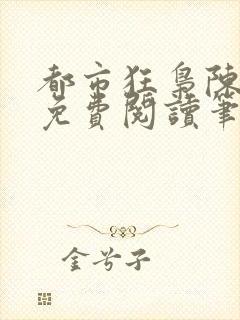 都市狂梟陳
免費閱讀筆
金兮子